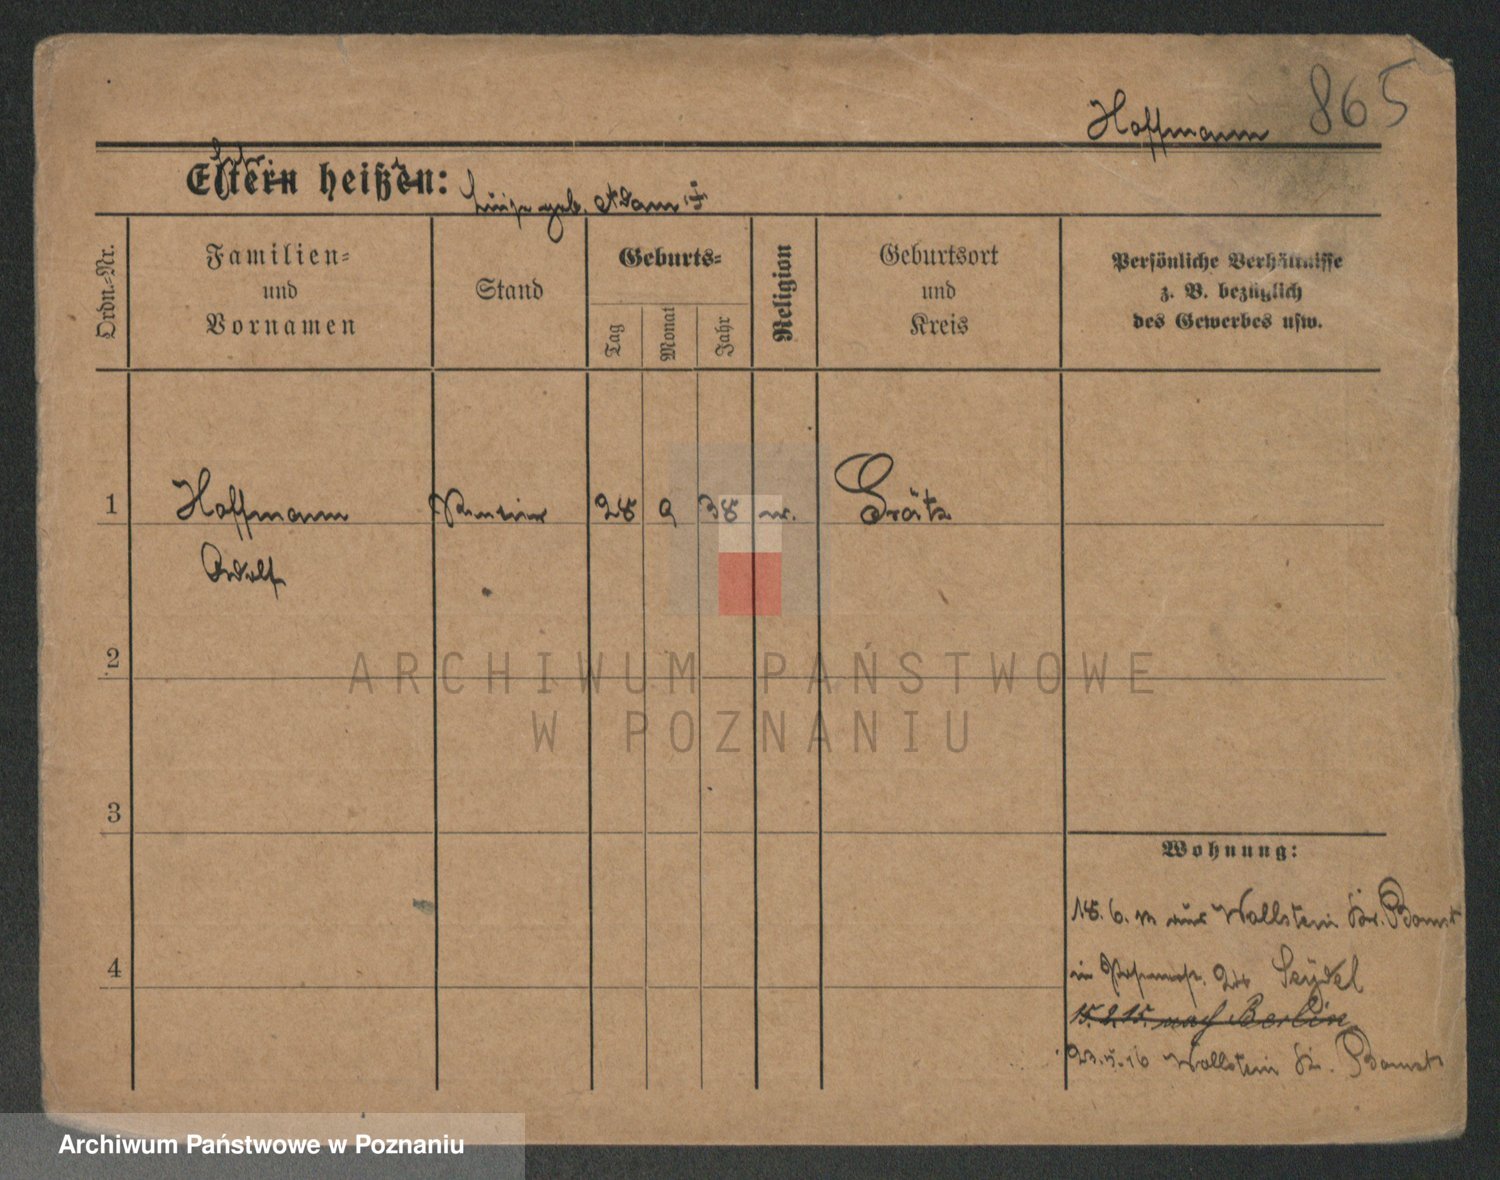 Hoffmann 865
Eltern heißen: geb. Adam
Ordn.-Nr.
Familien-
und
Vornamen
Stand
Geburts-
Tag
Monat
Jahr
Religion
Geburtsort
und
Kreis
Persönliche Verhältnisse
z. B. bezüglich
des Gewerbes usw.
1 Hoffmann Rentier 28 9 38 Grätz
Adolf
2
3
4
Wohnung:
18.6. aus Wollstein Kr. Bomst
in 24 Seydel
15.2.15. nach Berlin
16 Wollstein Kr. Bomst
ARCHIWUM PAŃSTWOWE
W POZNANIU
Archiwum Państwowe w Poznaniu